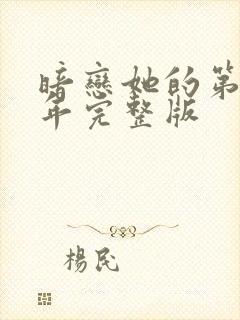 暗戀她的第
年完整版
楊民